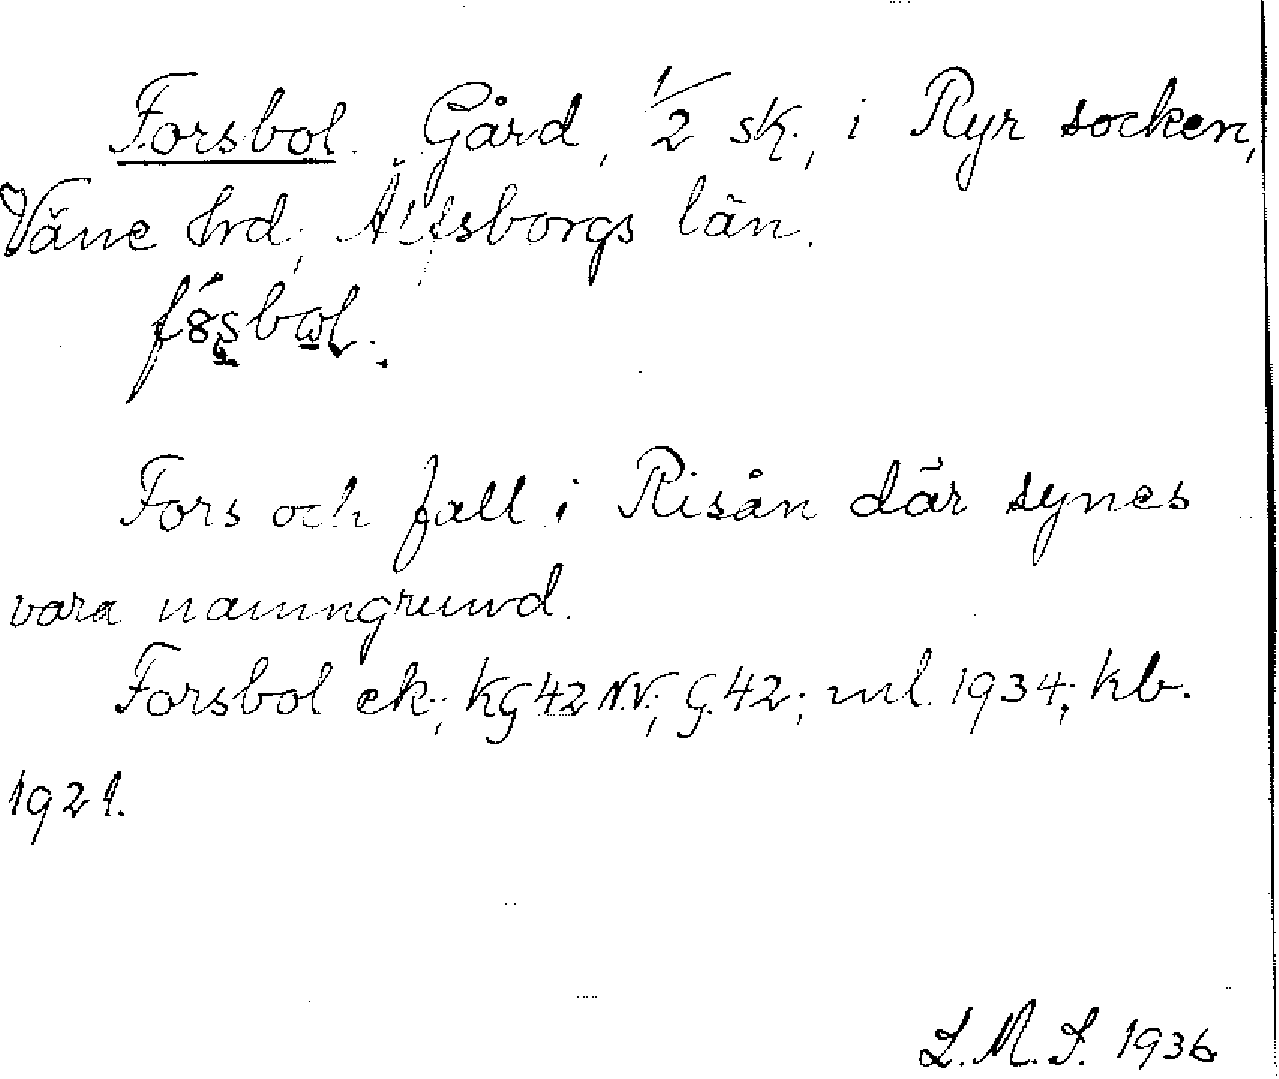 Forsbol. Gård, 1/2 sk., i Ryr socken,
Väne hrd, Älfsborgs län.
Fors och fall i Risån där synes
vara namngrund.
Forsbol ek.; KG 42 N.V.; G. 42; ml. 1934; kb.
1921.
L.M.S. 1936